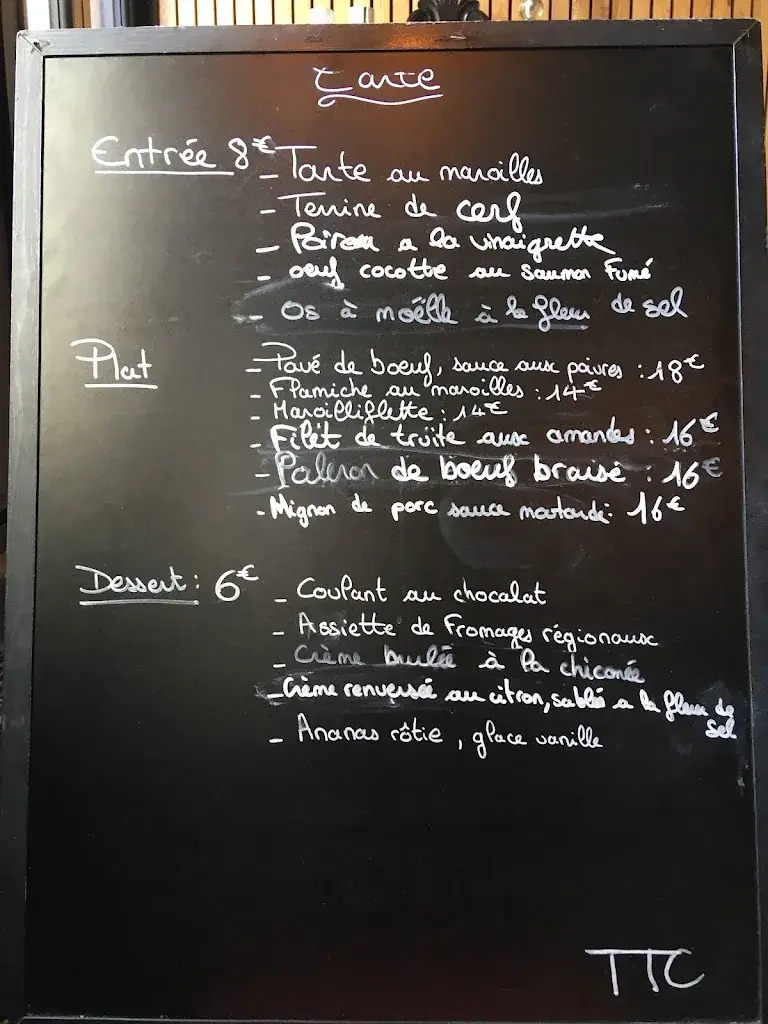 Carte
Entrée 8€ - Tarte au maroilles
- Terrine de cerf
- Poireau a la vinaigrette
- oeuf cocotte au saumon Fumé
- Os à moëlle à la fleur de sel
Plat - Pavé de boeuf, sauce aux poivres : 18€
- Flamiche au maroilles : 14€
- Maroilliflette : 14€
- Filet de truite aux amandes : 16€
- Paleron de boeuf braisé : 16€
- Mignon de porc sauce moutarde : 16€
Dessert : 6€ - Coulant au chocolat
- Assiette de Fromages régionaux
- Crème brulée à la chicorée
- Crème renversée au citron, sablé a la fleur de
sel
- Ananas rôtie, glace vanille
TTC